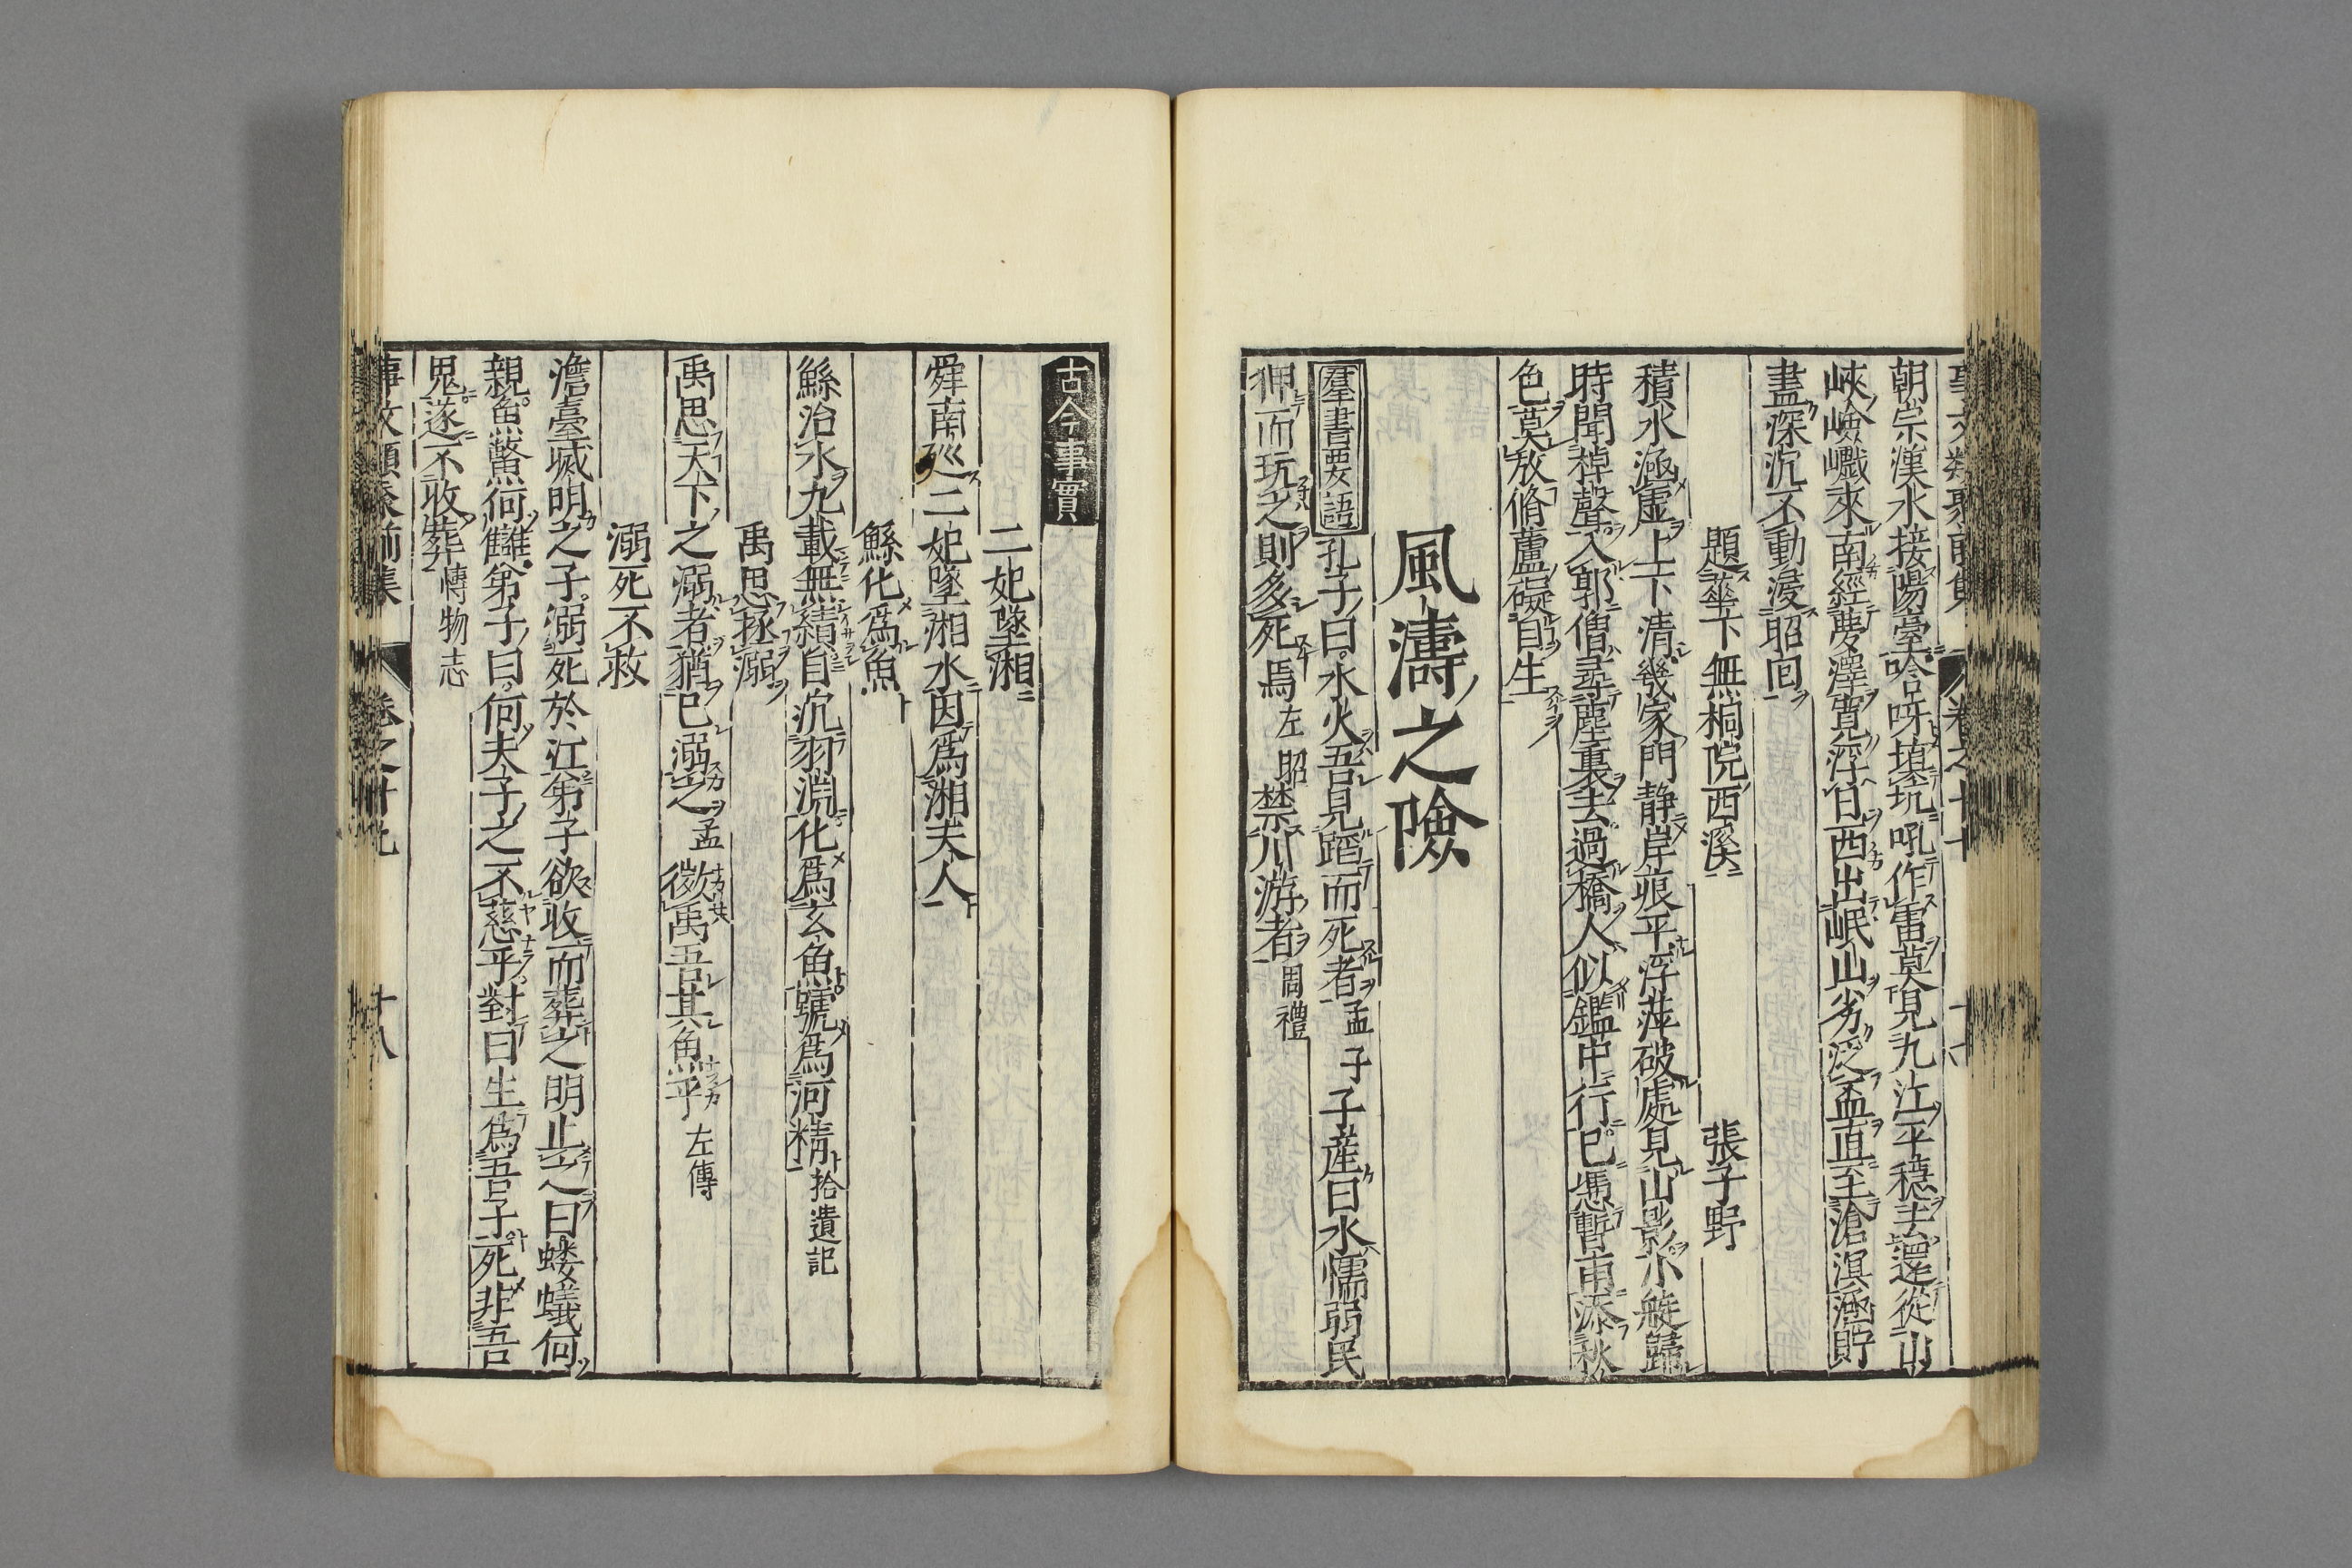 朝宗漢水接陽臺唅呀填坑吼作雷莫見九江平穩去還從山
峽嶮巇來南經夢澤寬浮日西出岷山劣泛盃直至滄溟涵貯
盡深沉不動浸昭回
題華下無桐院西溪 張子野
積水涵虛上下清幾家門靜岸痕平浮萍破處見山影小艇歸
時聞棹聲入郭僧尋塵裏去過橋人似鑑中行已憑暫雨添秋
色莫放脩蘆礙自生
風濤之險
羣書要語 孔子曰水火吾見蹈而死者孟子 子産曰水懦弱民
狎而玩之則多死焉左昭 禁川游者周禮
古今事實
二妃墜湘
舜南巡二妃墜湘水因爲湘夫人
鯀化爲魚
鯀治水九載無績自沉羽淵化爲玄魚號爲河精拾遺記
禹思拯溺
禹思天下之溺者猶己溺之孟 微禹吾其魚乎左傳
溺死不救
澹臺滅明之子溺死於江弟子欲收而葬之明止之曰螻蟻何
親魚鱉何讎弟子曰何夫子之不慈乎對曰生爲吾子死非吾
鬼遂不收葬博物志
事文類聚前集 卷之十七 十八